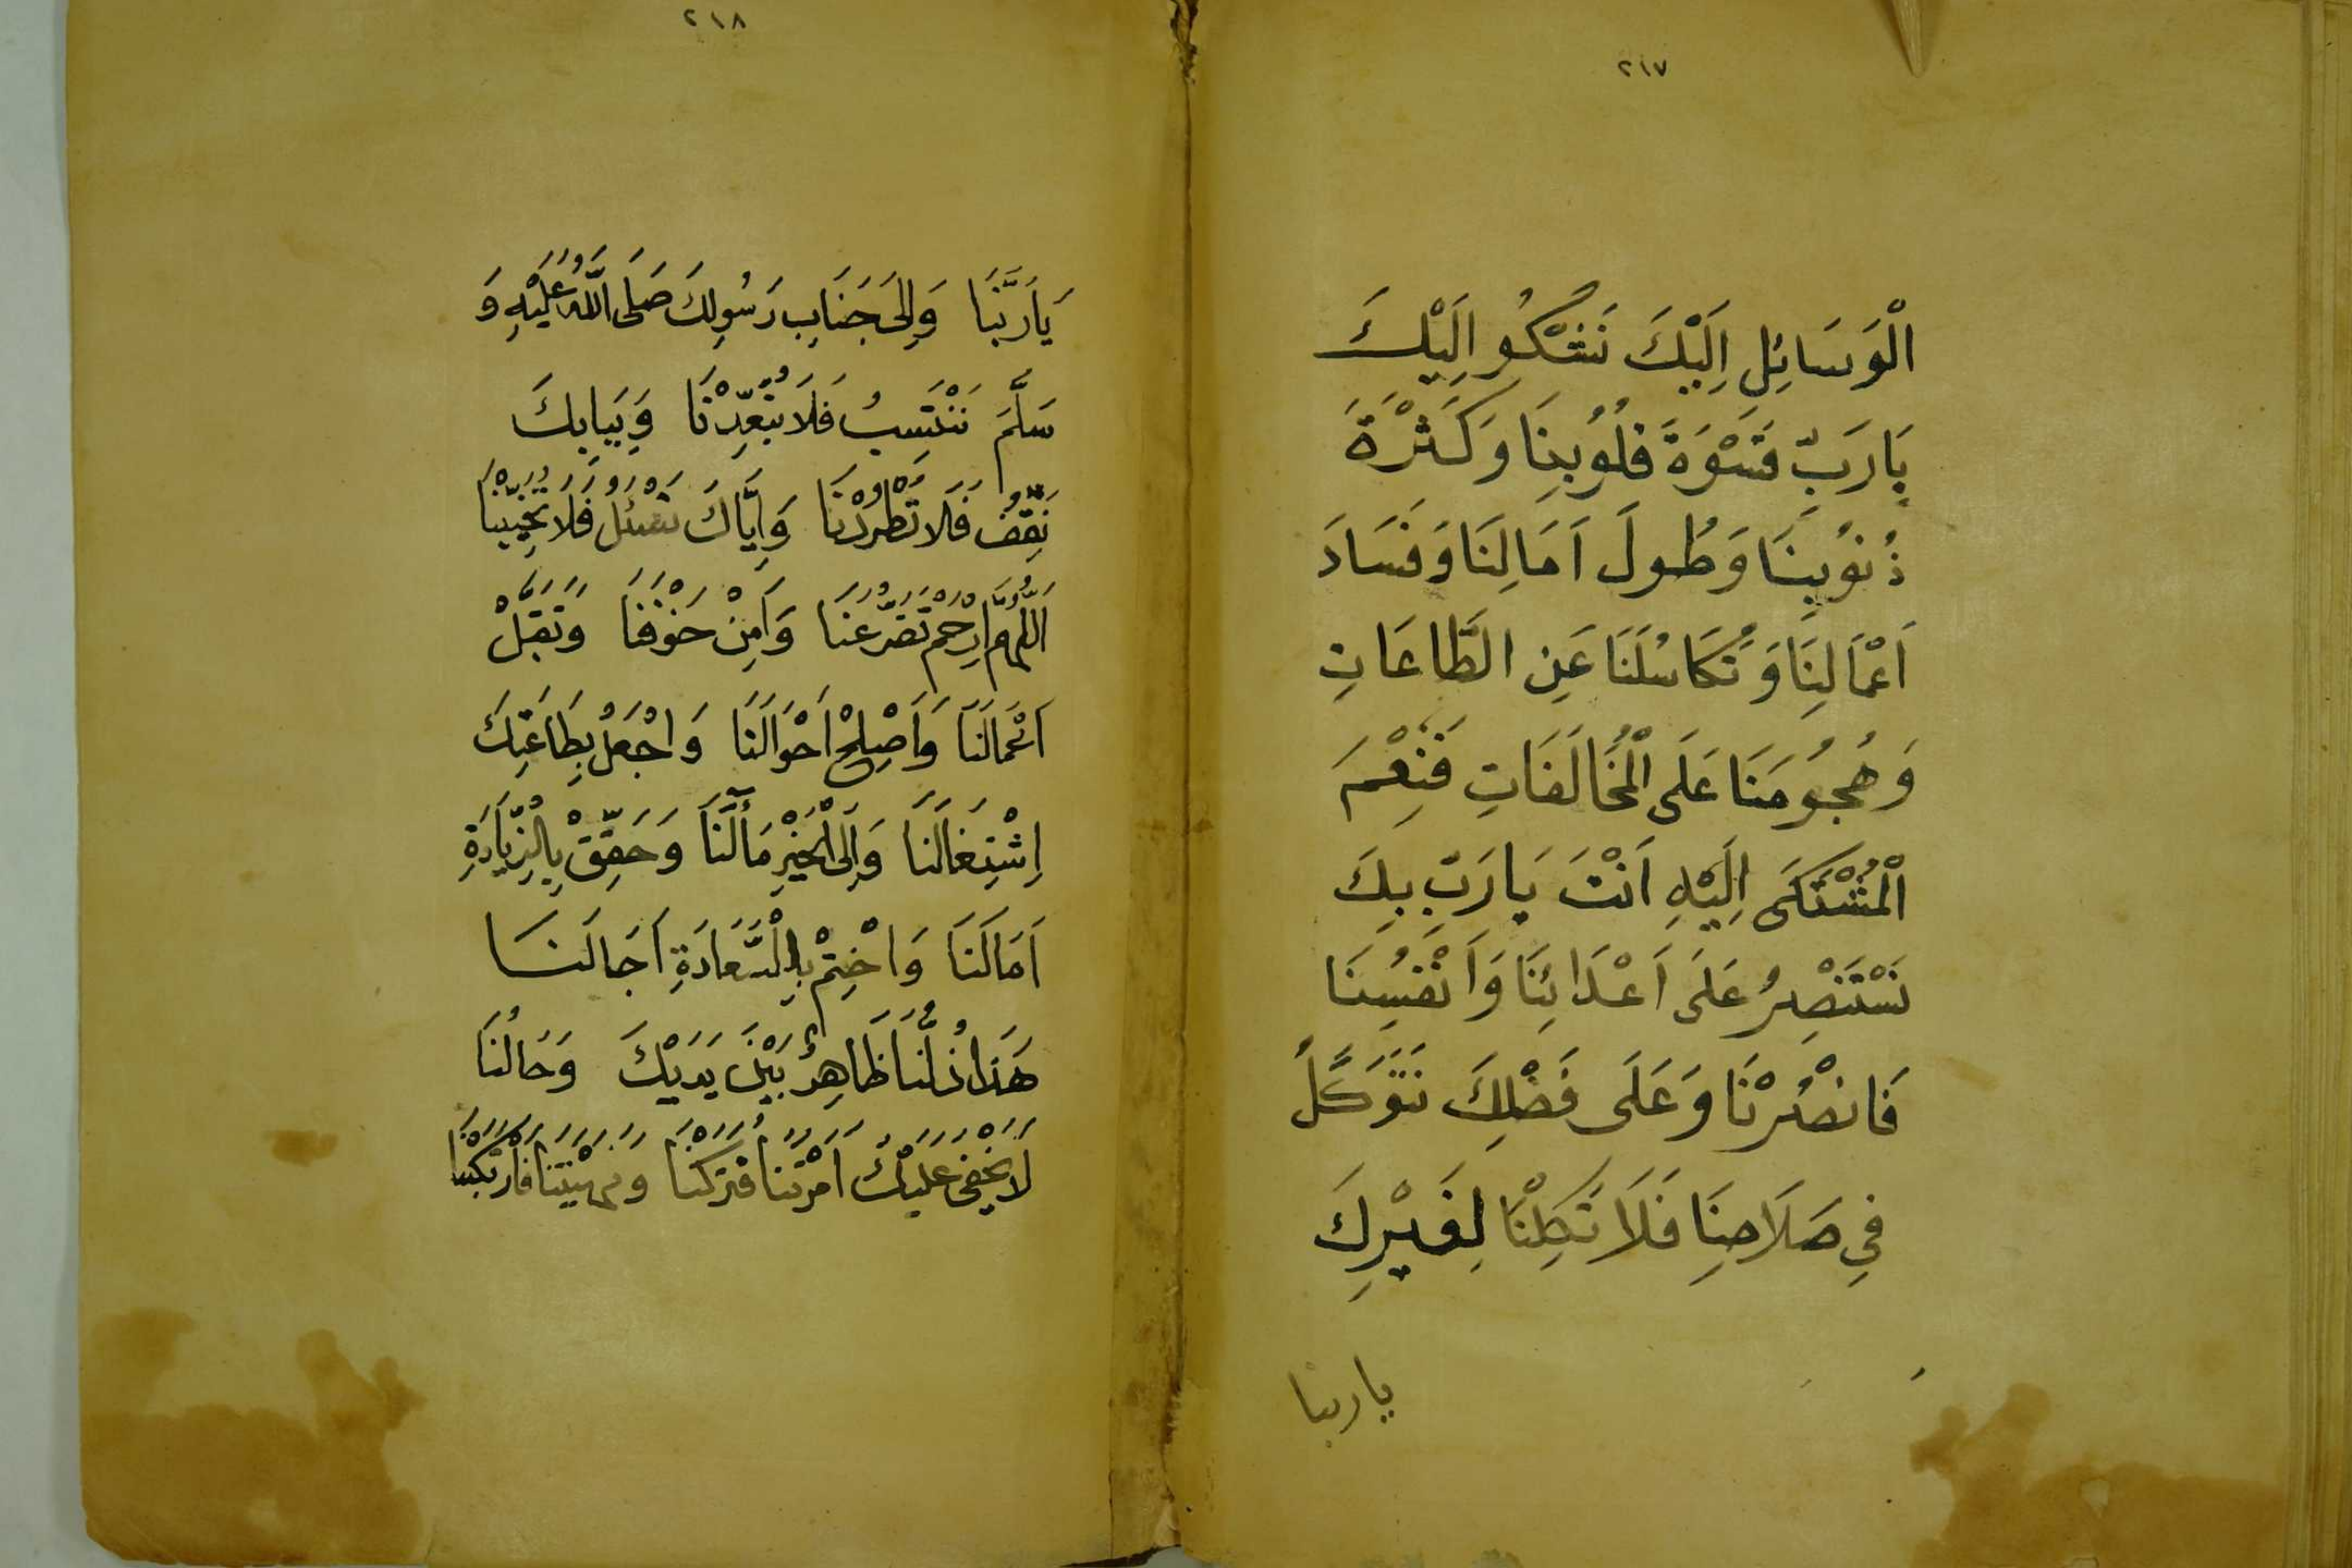 ٢١٧
الْوَسَائِلِ اِلَيْكَ نَشْكُو اِلَيْكَ
يَارَبِّ قَسْوَةَ قُلُوبِنَا وَكَثْرَةَ
ذُنُوبِنَا وَطُولَ اَمَالِنَا وَفَسَادَ
اَعْمَالِنَا وَتَكَاسُلَنَا عَنِ الطَّاعَاتِ
وَهُجُومَنَا عَلَى الْمُخَالَفَاتِ فَنِعْمَ
الْمُشْتَكَى اِلَيْهِ اَنْتَ يَارَبِّ بِكَ
نَسْتَنْصِرُ عَلَى اَعْدَائِنَا وَاَنْفُسِنَا
فَانْصُرْنَا وَعَلَى فَضْلِكَ نَتَوَكَّلُ
فِي صَلَاحِنَا فَلَا تَكِلْنَا لِغَيْرِكَ
ياربنا
٢١٨
يَارَبَّنَا وَاِلَى جَنَابِ رَسُولِكَ صَلَى اللَّهُ عَلَيْهِ وَ
سَلَّمَ نَنْتَسِبُ فَلَا تُبَعِّدْنَا وَبِبَابِكَ
نَقِفُ فَلَا تَطْرُدْنَا وَاِيَّاكَ نَسْئَلُ فَلَا تُخَيِّبْنَا
اَللّٰهُمَّ ارْحَمْ تَضَرُّعَنَا وَاَمِنْ خَوْفَنَا وَتَقَبَّلْ
اَعْمَالَنَا وَاَصْلِحْ اَحْوَالَنَا وَاجْعَلْ بِطَاعَتِكَ
اِشْتِغَالَنَا وَاِلَى الْخَيْرِ مَأَلَنَا وَحَقِّقْ بِالزِّيَادَةِ
اَمَالَنَا وَاخْتِمْ بِالسَّعَادَةِ اَجَالَنَا
هَذَا ذُلُّنَا ظَاهِرٌ بَيْنَ يَدَيْكَ وَحَالُنَا
لَا يَخْفَى عَلَيْكَ اَمَرْتَنَا فَتَرَكْنَا وَنَهَيْتَنَا فَارْتَكَبْنَا